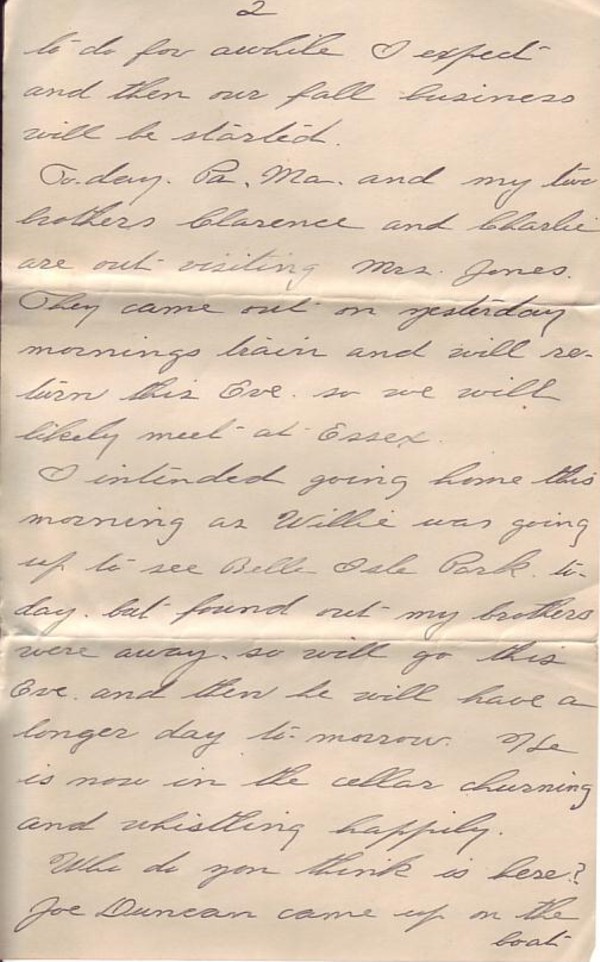 2
to do for awhile I expect
and then our fall business
will be started.
To-day. Pa, Ma. and my two
brothers Clarence and Charlie
are out visiting Mrs. Jones.
They came out on yesterday
mornings train and will re-
turn this Eve. so we will
likely meet at Essex.
I intended going home this
morning as Willie was going
up to see Belle Isle Park. to-
day. but found out my brothers
were away. so will go this
Eve. and then he will have a
longer day to-morrow. He
is now in the cellar churning
and whistling happily.
Who do you think is here?
Joe Duncan came up on the
boat